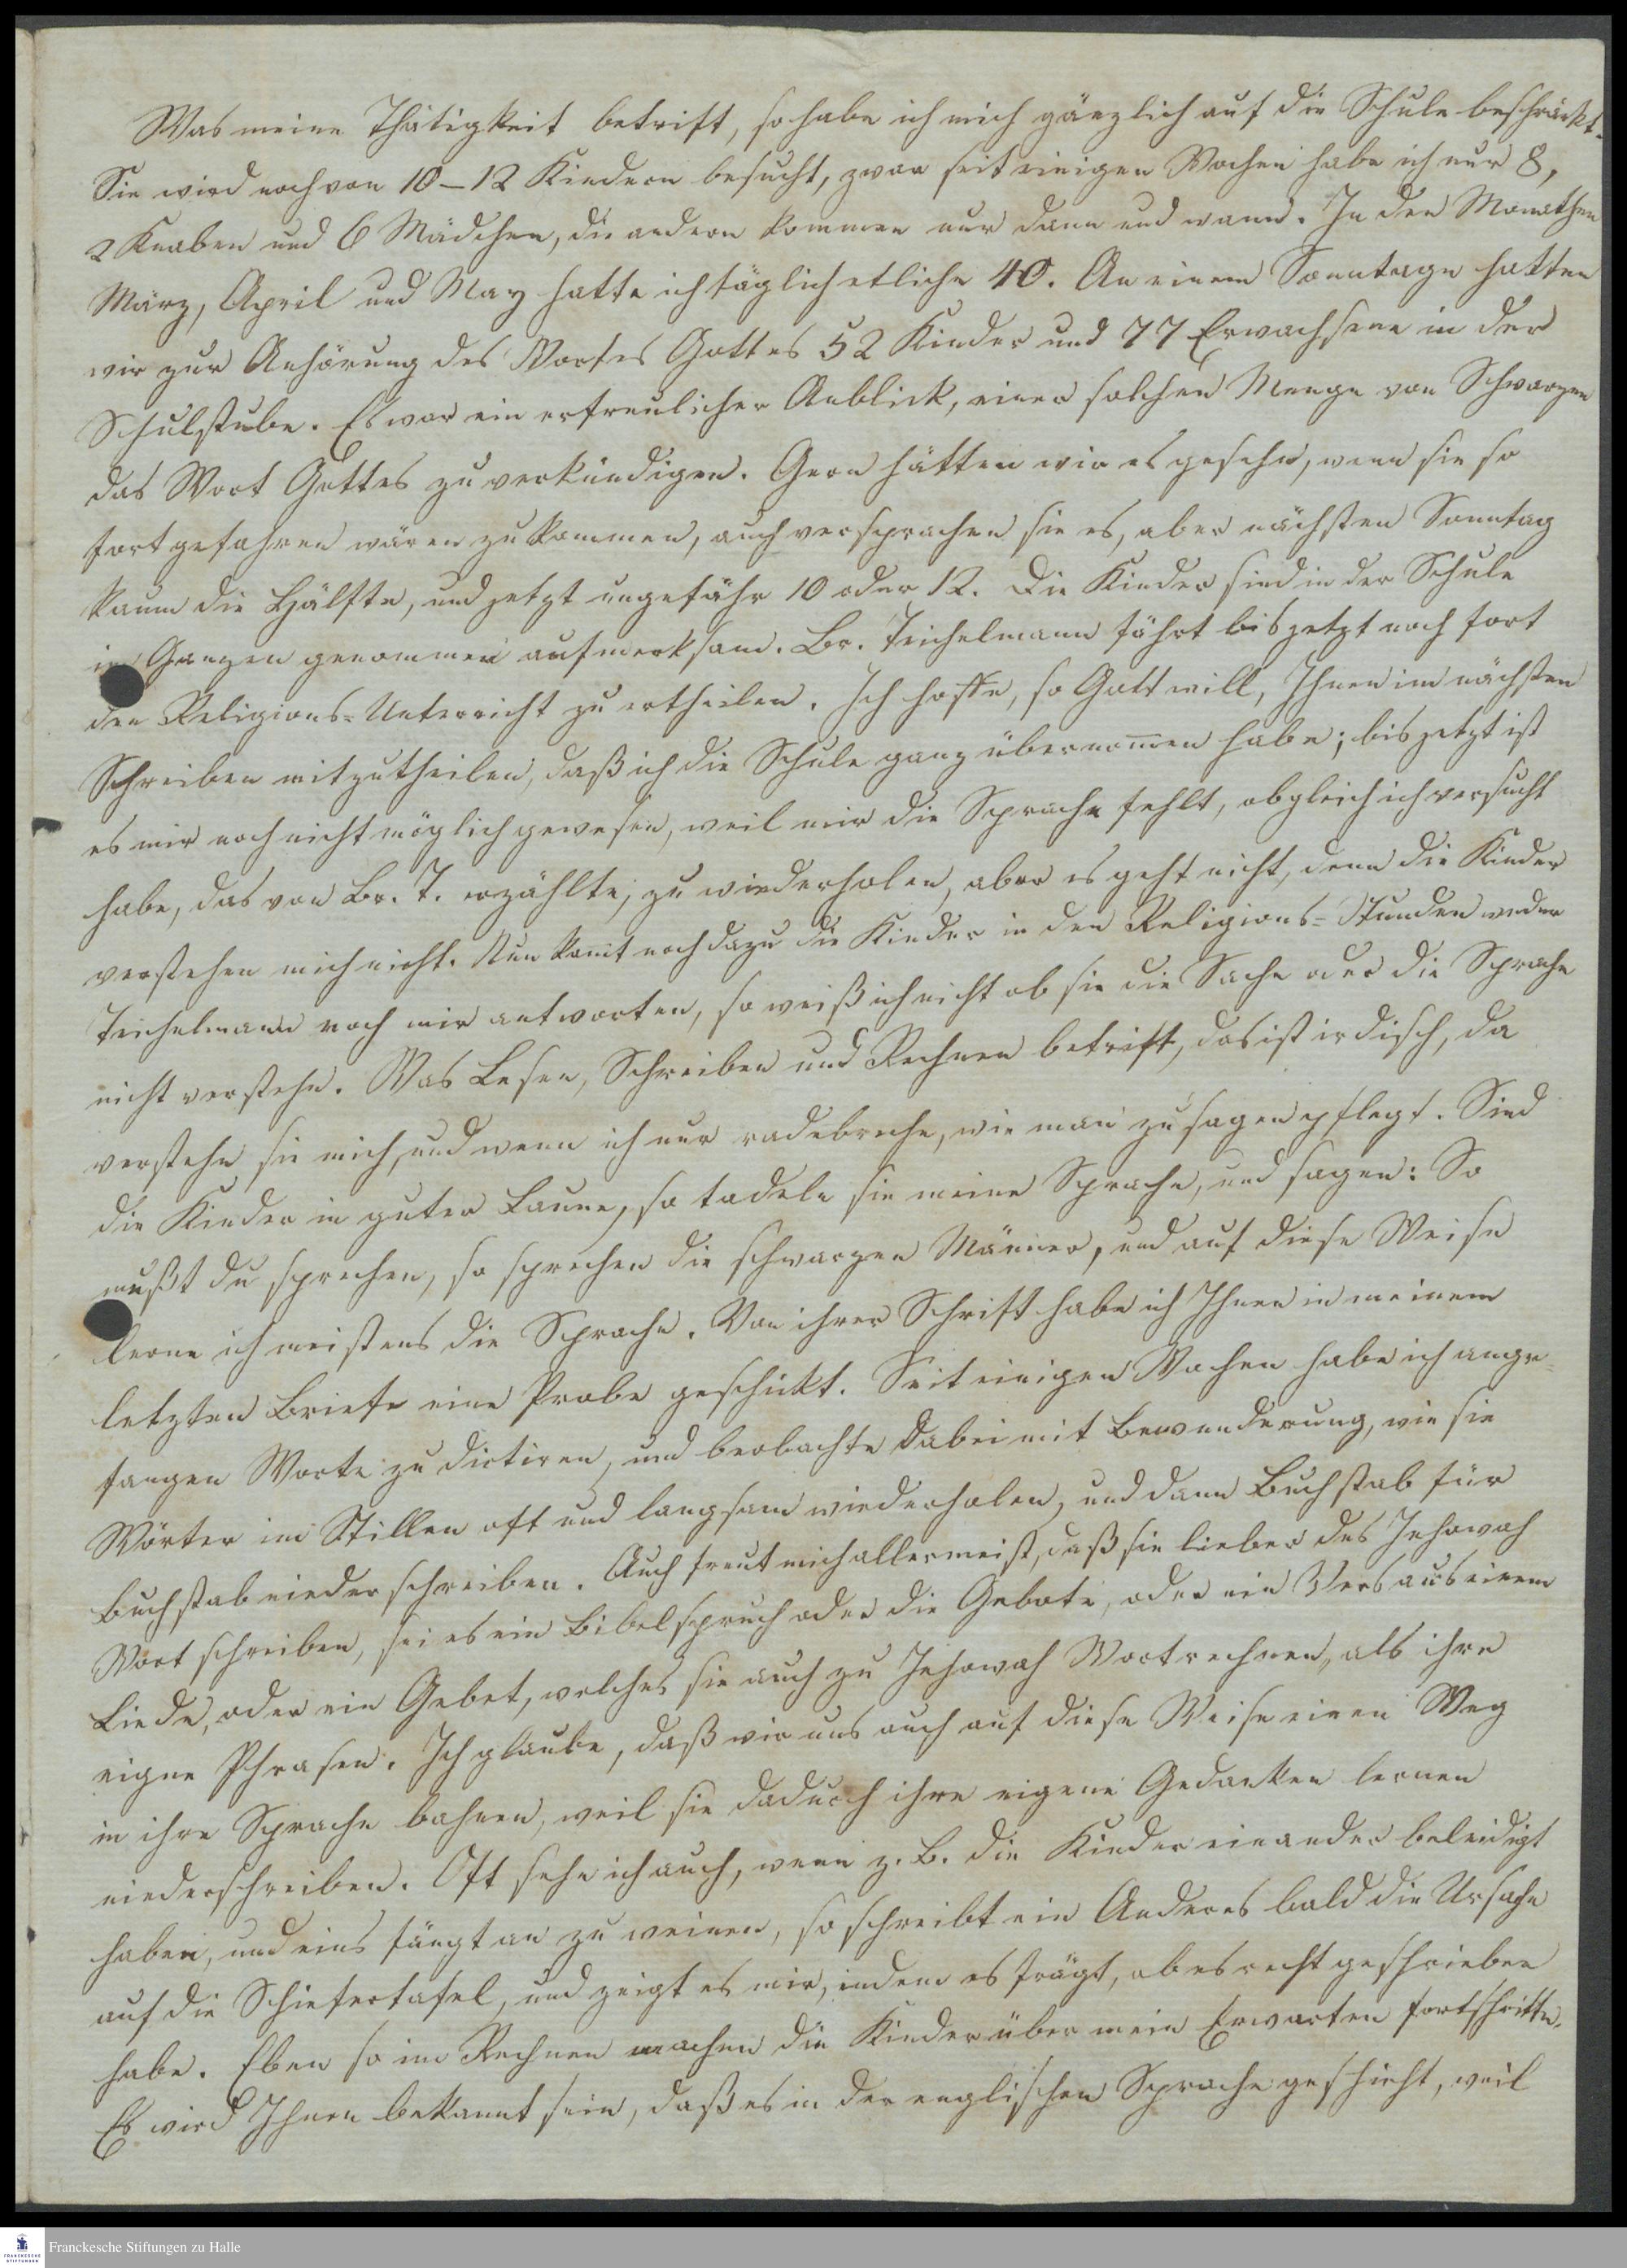 Was meine Thätigkeit betrift, so habe ich mich gänzlich auf die Schule beschränkt.
Sie wird noch von 10–12 Kindern besucht, zwar seit einigen Wochen habe ich nur 8,
2 Knaben und 6 Mädchen, die andern kommen nur dann und wann. In den Monathen
März, April und May hatte ich täglich etliche 40. An einem Sonntage hatten
wir zur Anhörung des Wortes Gottes 52 Kinder und 77 Erwachsene in der
Schulstube. Es war ein erfreulicher Anblick, einer solchen Menge von Schwarzen
das Wort Gottes zu verkündigen. Gern hätten wir es gesehn, wenn sie so
fort gefahren wären zu kommen, auch versprachen sie es, aber nächsten Sonntag
kaum die Hälfte, und jetzt ungefähr 10 oder 12. Die Kinder sind in der Schule
im Ganzen genommen aufmerksam. Br. Teichelmann fährt bis jetzt noch fort
den Religions-Unterricht zu ertheilen. Ich hoffe, so Gott will, Ihnen im nächsten
Schreiben mitzutheilen, daß ich die Schule ganz übernom̅en habe; bis jetzt ist
es mir noch nicht möglich gewesen, weil mir die Sprache fehlt, obgleich ich versucht
habe, das von Br. T. erzählte, zu wiederholen, aber es geht nicht, denn die Kinder
verstehen mich nicht. Nun komt noch dazu die Kinder in den Religions-Stunden weder
Teichelmann noch mir antworten, so weiß ich nicht ob sie die Sache oder die Sprache
nicht verstehn. Was Lesen, Schreiben und Rechnen betrift, das ist irdisch, da
verstehn sie mich, und wenn ich nur radebreche, wie man zu sagen pflegt. Sind
die Kinder in guter Laune, so tadeln sie meine Sprache, und sagen: So
mußt du sprechen, so sprechen die schwarzen Männer, und auf diese Weise
lerne ich meistens die Sprache. Von ihrer Schrift habe ich Ihnen in meinem
letzten Briefe eine Probe geschickt. Seit einigen Wochen habe ich ange-
fangen Worte zu dictiren, und beobachte dabei mit Bewunderung, wie sie
Wörter im Stillen oft und langsam wiederholen, und dann Buchstab für
Buchstab niederschreiben. Auch freut mich allermeist, daß sie lieber des Jehovah
Wort schreiben, sei es ein Bibelspruch oder die Gebote, oder ein Vers aus einem
Liede, oder ein Gebet, welches sie auch zu Jehovah Wort rechnen, als ihre
eigne Phrasen. Ich glaube, daß wir uns auch auf diese Weise einen Weg
in ihre Sprache bahnen, weil sie dadurch ihre eigene Gedanken lernen
niederschreiben. Oft sehe ich auch, wenn z. B. die Kinder einander beleidigt
haben, und eins fängt an zu weinen, so schreibt ein Anderes bald die Ursache
auf die Schiefertafel, und zeigt es mir, indem es frägt, ob es recht geschrieben
habe. Eben so im Rechnen machen die Kinder über mein Erwarten Fortschritte.
Es wird Ihnen bekannt sein, daß es in der englischen Sprache geschieht, weil
Franckesche Stiftungen zu Halle